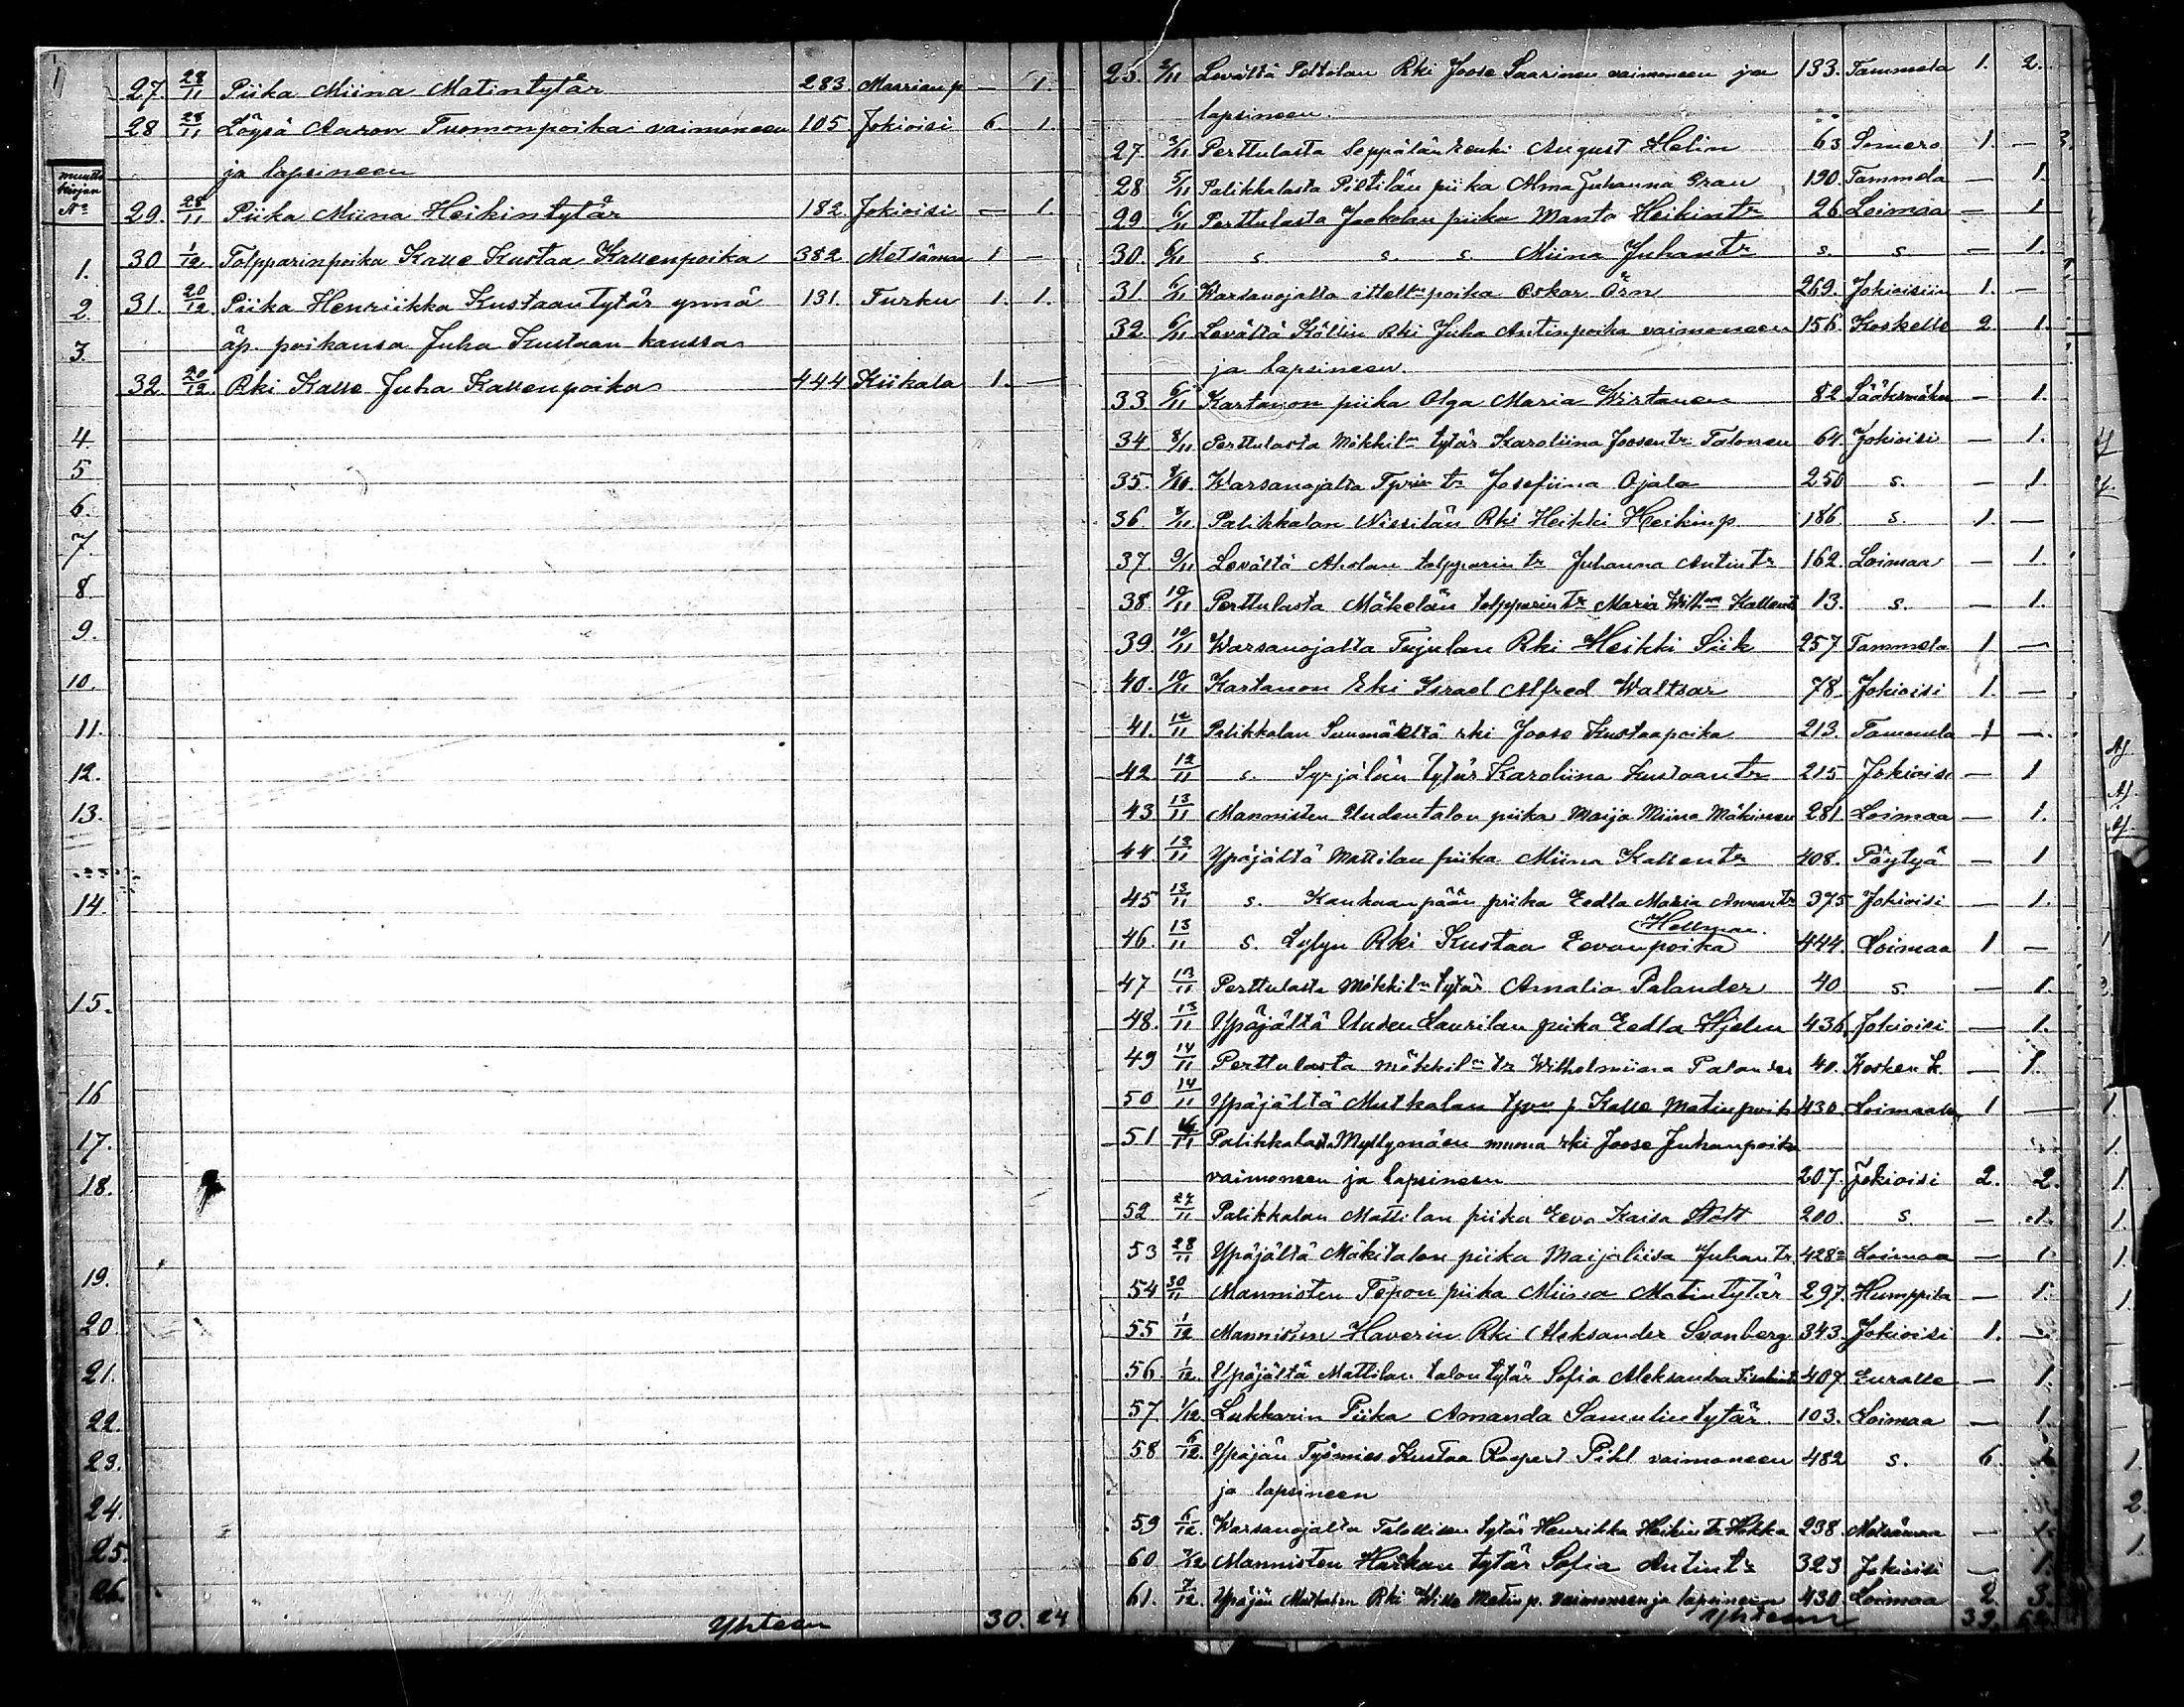 27. 28/11 Piika Miina Matintytär 283 Marrian p — 1.
28 28/11 Löysä Aaron Tuomonpoika vaimoneen 105 Jokioisi 6. 1.
ja lapsineen
29. 28/11 Piika Miina Heikintytär 182 Jokioisi — 1.
30 1/12 Tolpparinpoika Kalle Kustaa Kallenpoika 382 Metsämaa 1 —
31. 20/12 Piika Henriikka Kustaantytär ynnä 131. Turku 1. 1.
äp. poikansa Juha Kustaan kanssa
32. 20/12 Rki Kalle Juha Kallenpoika 444 Kiikala 1. —
Yhteen 30. 24
muutto
kirjan
No
1.
2.
3.
4.
5
6.
7.
8.
9.
10.
11.
12.
13.
14.
15.
16
17.
18.
19.
20
21.
22.
23.
24.
25.
26.
2/11 Levältä Peltolan Rki Joose Saarinen vaimoneen ja 133. Tammela 1. 2.
lapsineen.
27. 3/11 Perttulasta Seppälän renki August Helin 63 Somero 1. — 3.
28 5/11 Palikkalasta Pietilän piika Alma Juhanna Gran 190 Tammela — 1.
29. 6/11 Perttulasta Jaakolan piika Manta Heikintr 26 Loimaa — 1
30. 6/11 s. s. s. Miina Juhantr s. s. — 1.
31. 6/11 Warsanojalta ittell. poika Oskar Örn 269. Jokioisiin 1. —
32. 6/11 Levältä Källin Rki Juha Antinpoika vaimoneen 156. Koskelle 2 1.
ja lapsineen.
33. 6/11 Kartanon piika Olga Maria Wirtanen 82 Sääksmäken — 1.
34 8/11 Perttulasta Mökkiln tytär Karoliina Joosentr Talonen 64. Jokioisi — 1.
35. 8/11. Warsanojalta tr Josefiina Ojala 250 s. — 1
36. 8/11. Palikkalan Nissilän Rki Heikki Heikinp. 186 s. 1. —
37. 9/11 Levältä Aholan tolpparin tr Juhanna Antintr 162. Loimaa — 1.
38. 10/11 Perttulasta Mäkelän tolpparin tr Maria Wilhna Kallentr 13. s. — 1.
39. 10/11 Warsanojalta Tujulan Rki Heikki Siik 257 Tammela 1 —
40. 10/11 Kartanon Rki Israel Alfred Waltsar 78. Jokioisi 1. —
41. 12/11 Palikkalan Suumäeltä rki Joose Kustaapoika 213. Tammela 1 —
42 12/11 s. Syrjälän tytär Karoliina Kustaantr 215 Jokioisi — 1
43 13/11 Mannisten Uudentalon piika Maija Miina Mäkinen 281 Loimaa — 1.
44 13/11 Ypäjältä Mattilan piika Miina Kallentr 408. Pöytyä — 1
45 13/11 s. Kankaanpään piika Eedla Maria Annantr 375 Jokioisi — 1.
Hellman.
46. 13/11 s. Lylyn Rki Kustaa Eevanpoika 444. Loimaa 1 —
47 13/11 Perttulasta Mökkiln tytär Amalia Palander 40 s. — 1.
48. 13/11 Ypäjältä Uuden Laurilan piika Eedla Hjelm 436 Jokioisi — 1.
49 14/11 Perttulasta mökkiln tr Wilhelmiina Palander 40. Kosken L. — 1.
50 14/11 Ypäjältä Mutkalan p Kalle Matinpoika 430 Loimaalle 1 —
51 Palikkalasta Myllymäen muona rki Joose Juhanpoika
vaimoneen ja lapsineen 207. Jokioisi 2. 2.
52 27/11 Palikkalan Mattilan piika Eeva Kaisa 200. s — 1.
53 28/11 Ypäjältä Mäkitalon piika Maijaliisa Juhantr 428a Loimaa — 1.
54 30/11 Mannisten Tepon piika Miina Matintytär 297. Humppila — 1.
55 1/12 Mannisten Haverin Rki Aleksander Svanberg 343. Jokioisi 1. —
56. 1/12. Ypäjältä Mattilan talontytär Sofia Aleksandra 407 Euralle — 1.
57. 1/12. Lukkarin Piika Amanda Samulintytär 103. Loimaa — 1.
58 6/12. Ypäjän Työmies Kustaa Pihl vaimoneen 482 s. 6. 1.
ja lapsineen
59 6/12. Warsanojalta Talollisen tytär Henrikka Heikintr 238. Metsämaa — 1.
60 7/12 Mannisten Harkan tytär Sofia Antintr 323 Jokioisi — 1.
61. 7/12. Ypäjän Mutkalan Rki Wille Matinp. vaimoneen ja lapsineen 430 Loimaa 2. 3.
Yhteen 39.